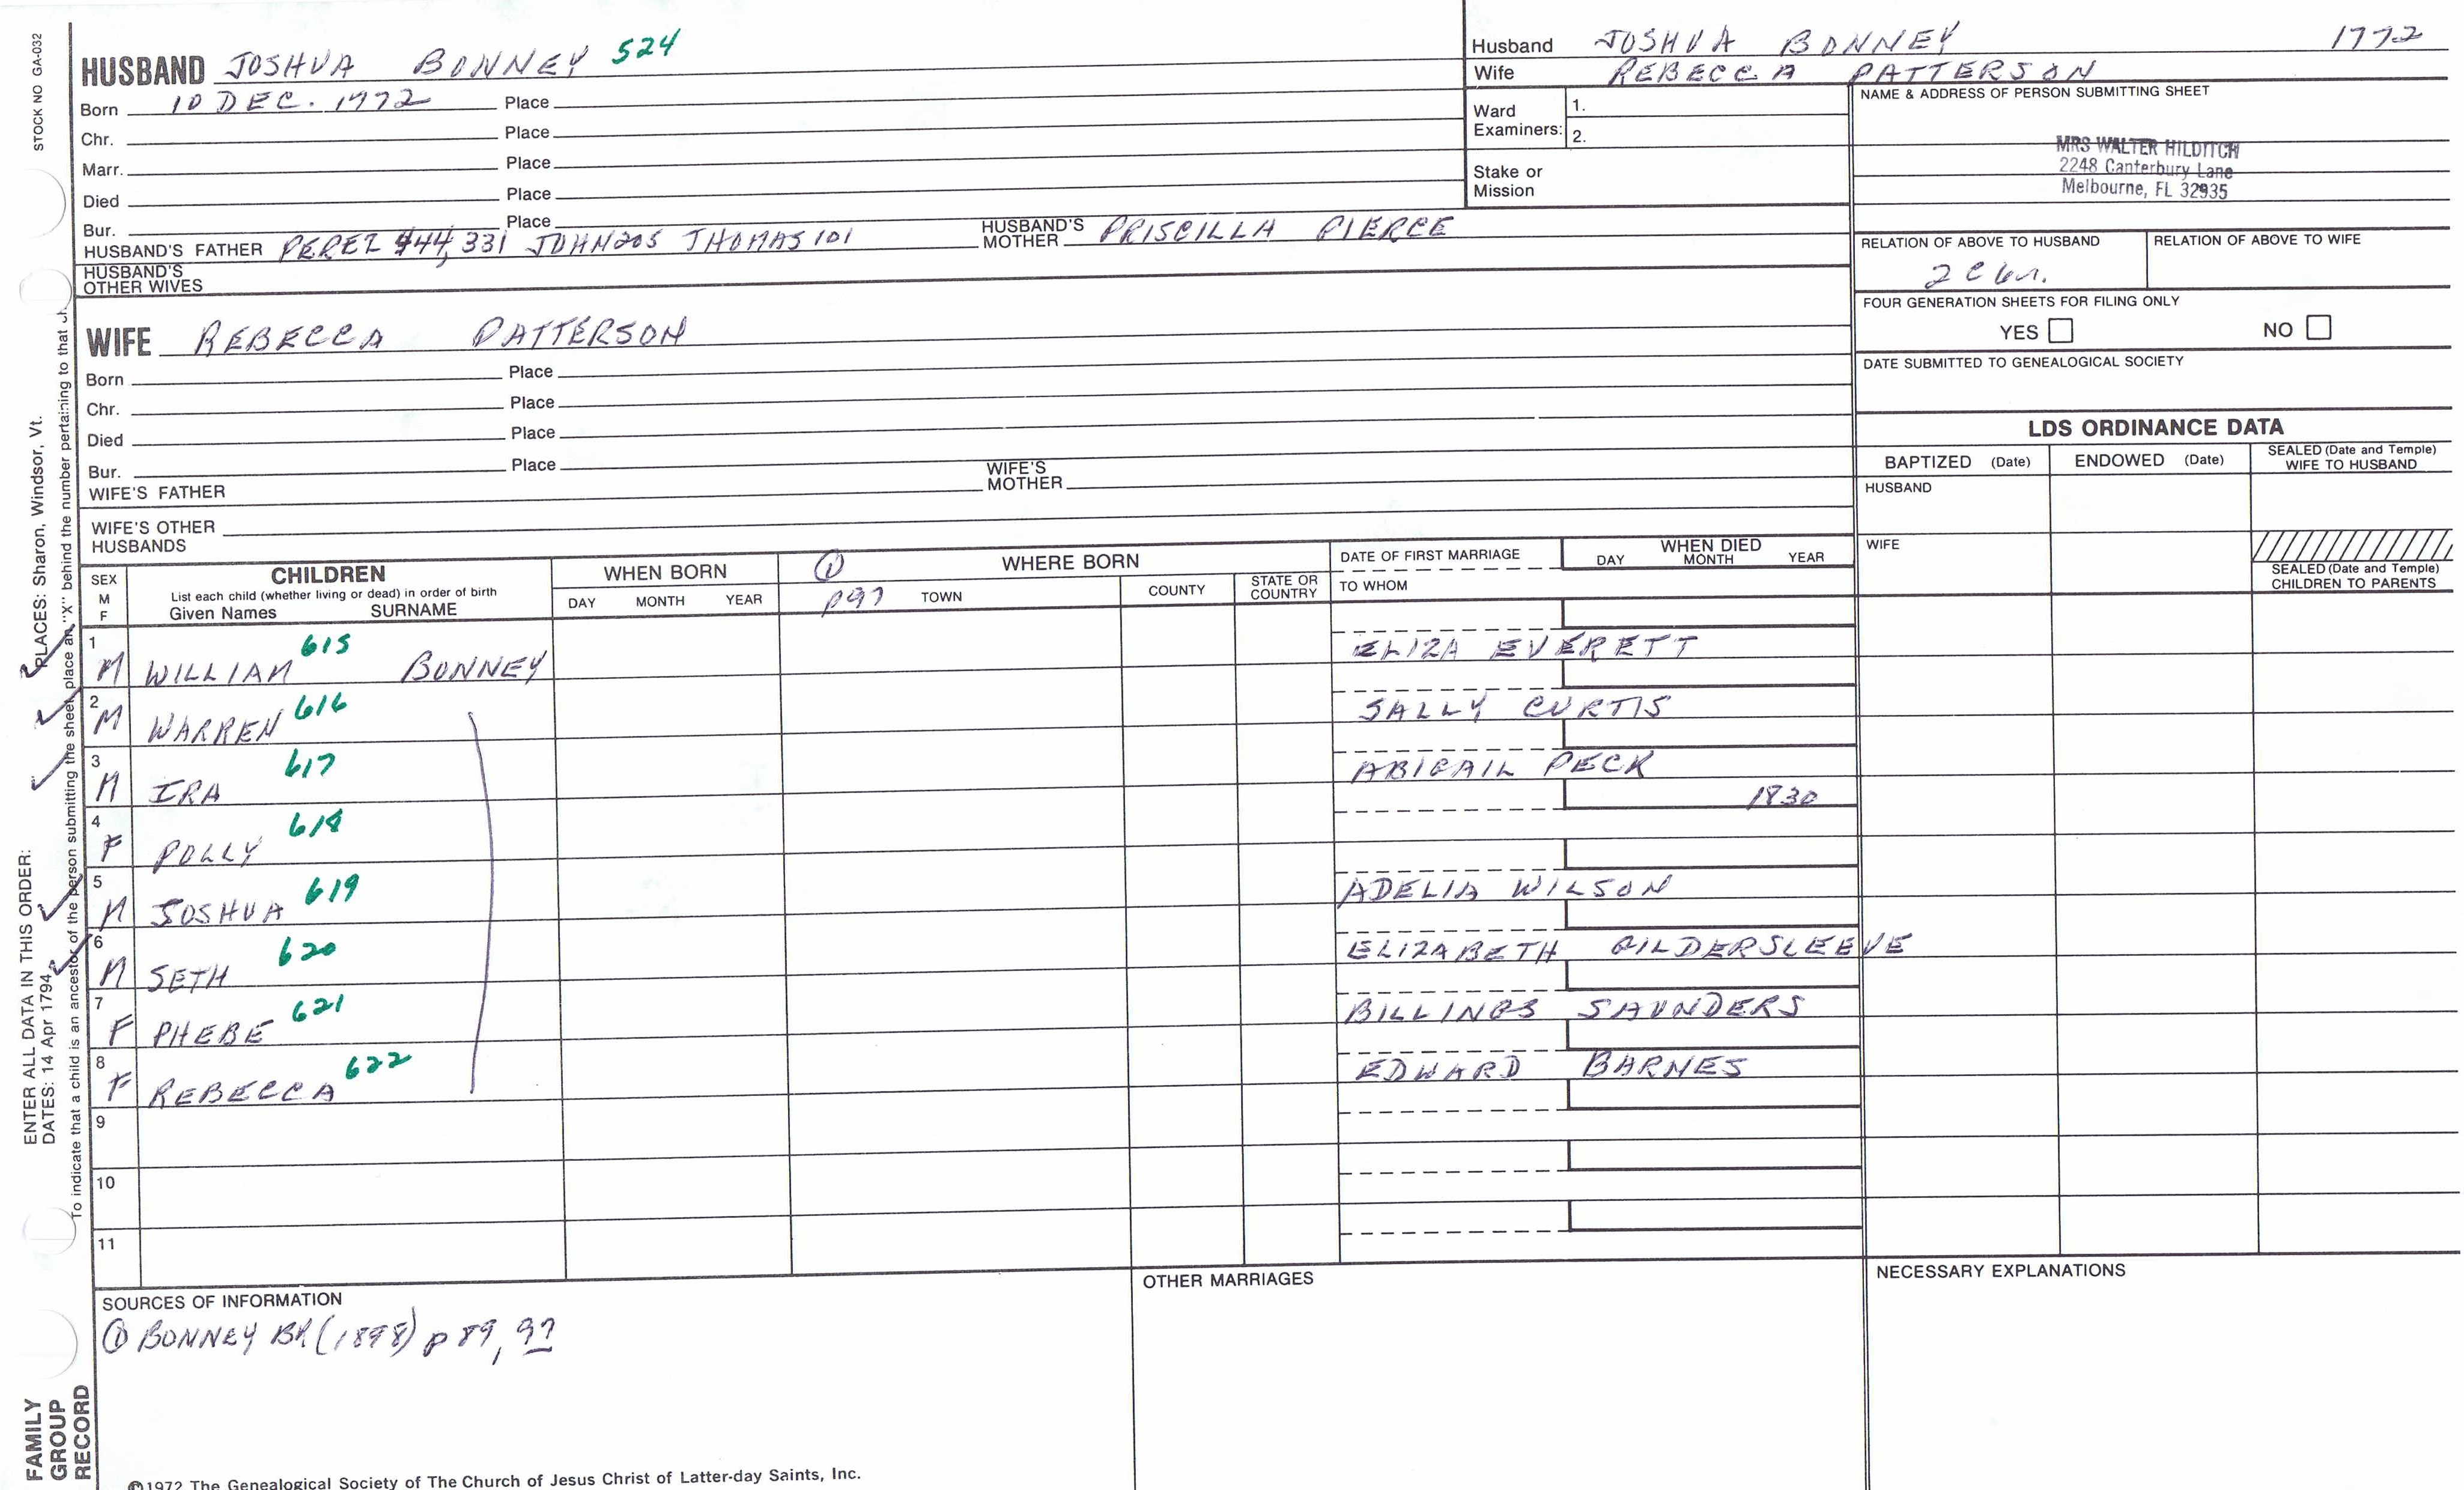 STOCK NO GA-032
HUSBAND JOSHUA BONNEY 524
Born 10 DEC. 1772 Place
Chr. Place
Marr. Place
Died Place
Bur. Place
HUSBAND'S FATHER PEREZ 444, 331 JOHN 205 THOMAS 101 HUSBAND'S MOTHER PRISCILLA PIERCE
HUSBAND'S OTHER WIVES
WIFE REBECCA PATTERSON
Born Place
Chr. Place
Died Place
Bur. Place
WIFE'S FATHER WIFE'S MOTHER
WIFE'S OTHER HUSBANDS
Husband JOSHUA BONNEY 1772
Wife REBECCA PATTERSON
Ward Examiners: 1.
2.
Stake or Mission
NAME & ADDRESS OF PERSON SUBMITTING SHEET
MRS WALTER HILDITCH
2248 Canterbury Lane
Melbourne, FL 32935
RELATION OF ABOVE TO HUSBAND RELATION OF ABOVE TO WIFE
FOUR GENERATION SHEETS FOR FILING ONLY
YES NO
DATE SUBMITTED TO GENEALOGICAL SOCIETY
LDS ORDINANCE DATA
BAPTIZED (Date) ENDOWED (Date) SEALED (Date and Temple) WIFE TO HUSBAND
HUSBAND
WIFE
SEALED (Date and Temple) CHILDREN TO PARENTS
SEX M F
CHILDREN
List each child (whether living or dead) in order of birth
Given Names SURNAME
WHEN BORN
DAY MONTH YEAR
① WHERE BORN
p97 TOWN COUNTY STATE OR COUNTRY
DATE OF FIRST MARRIAGE
TO WHOM
WHEN DIED
DAY MONTH YEAR
1 M WILLIAM 615 BONNEY ELIZA EVERETT
2 M WARREN 616 SALLY CURTIS
3 M IRA 617 ABIGAIL PECK
4 F POLLY 618 1830
5 M JOSHUA 619 ADELIA WILSON
6 M SETH 620 ELIZABETH GILDERSLEEVE
7 F PHEBE 621 BILLINGS SAUNDERS
8 F REBECCA 622 EDWARD BARNES
9
10
11
SOURCES OF INFORMATION
① BONNEY BK (1898) p 89, 97
OTHER MARRIAGES
NECESSARY EXPLANATIONS
ENTER ALL DATA IN THIS ORDER:
DATES: 14 Apr 1794
PLACES: Sharon, Windsor, Vt.
To indicate that a child is an ancestor of the person submitting the sheet, place an "X" behind the number pertaining to that
FAMILY GROUP RECORD
©1972 The Genealogical Society of The Church of Jesus Christ of Latter-day Saints, Inc.